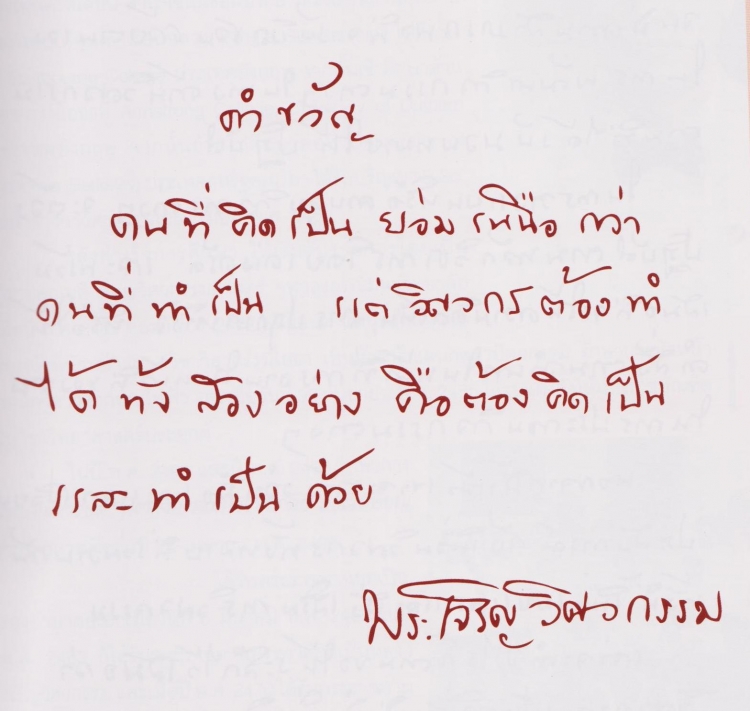 คำขวัญ
คนที่คิดเป็น ย่อมเหนือกว่า
คนที่ทำเป็น แต่วิศวกรต้องทำ
ได้ทั้งสองอย่าง คือต้องคิดเป็น
และทำเป็นด้วย
พระเจริญวิศวกรรม